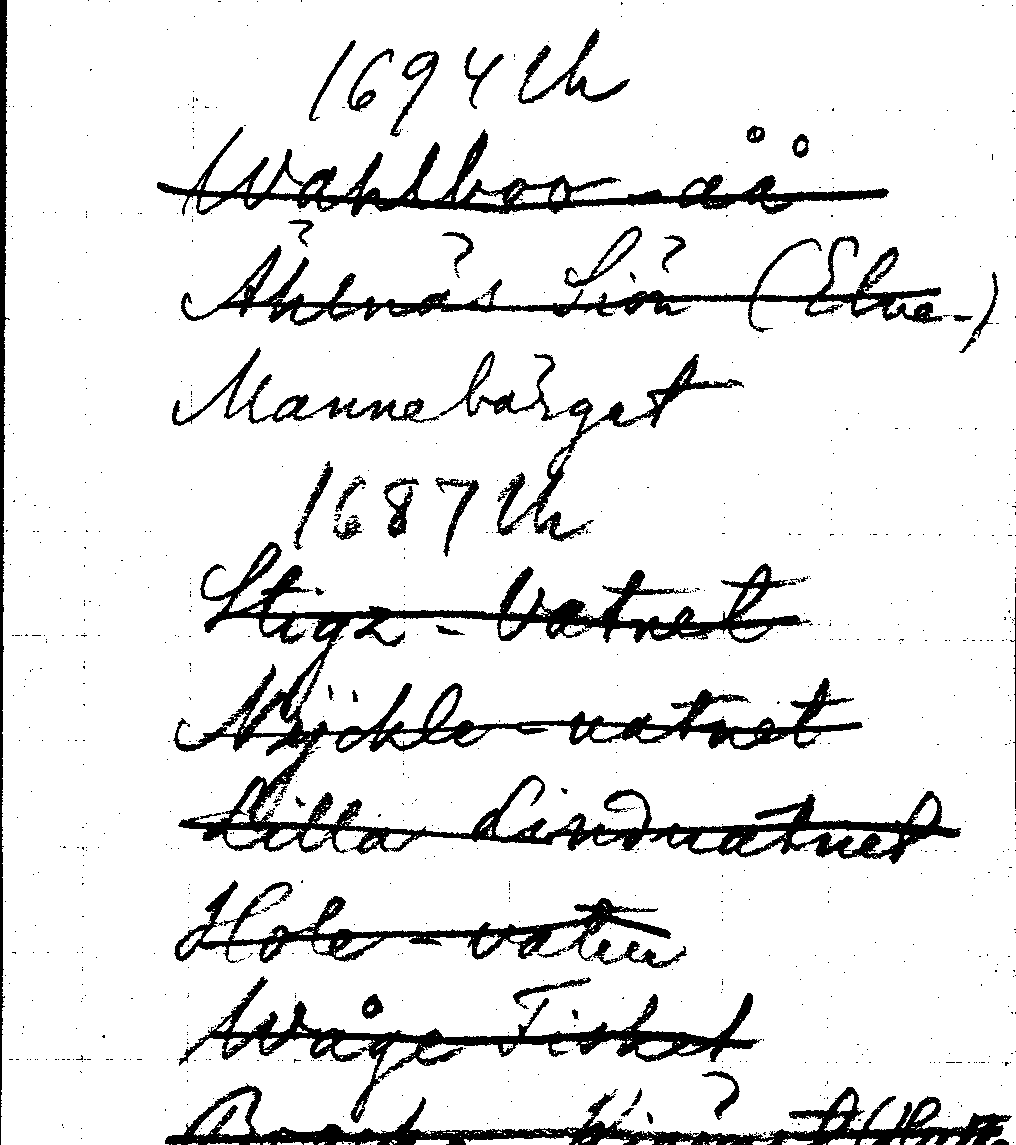 1694 Uh
Wahlboo-åå
Åhlnäs Siön (Elve-)
Mannebärget
1687 Uh
Stigz-Vatnet
Nÿckle-vatnet
Lilla Lindvatnet
Hole-vatn
Wåge Fisket